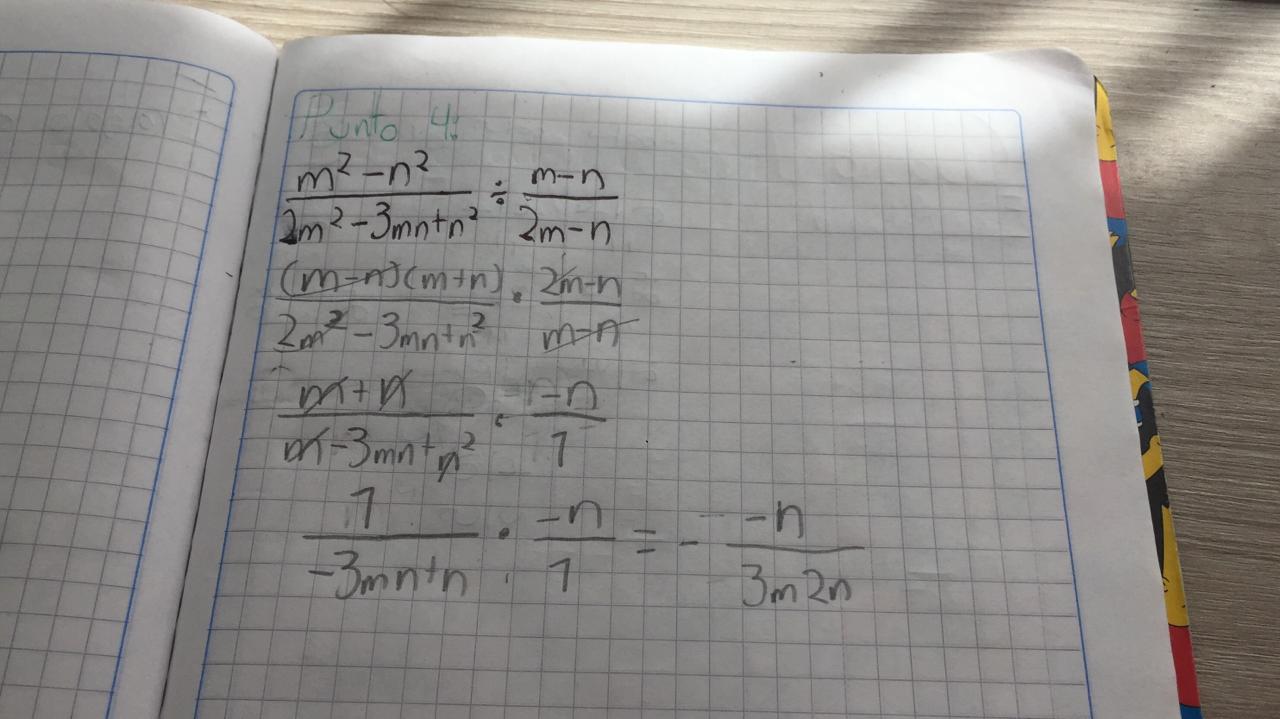 Punto 4:
m² - n² / 2m² - 3mn + n² ÷ m - n / 2m - n
(m - n)(m + n) / 2m² - 3mn + n² · 2m - n / m - n
m + n / m - 3mn + n² · - n / 1
1 / -3mn + n · -n / 1 = - -n / 3m2n